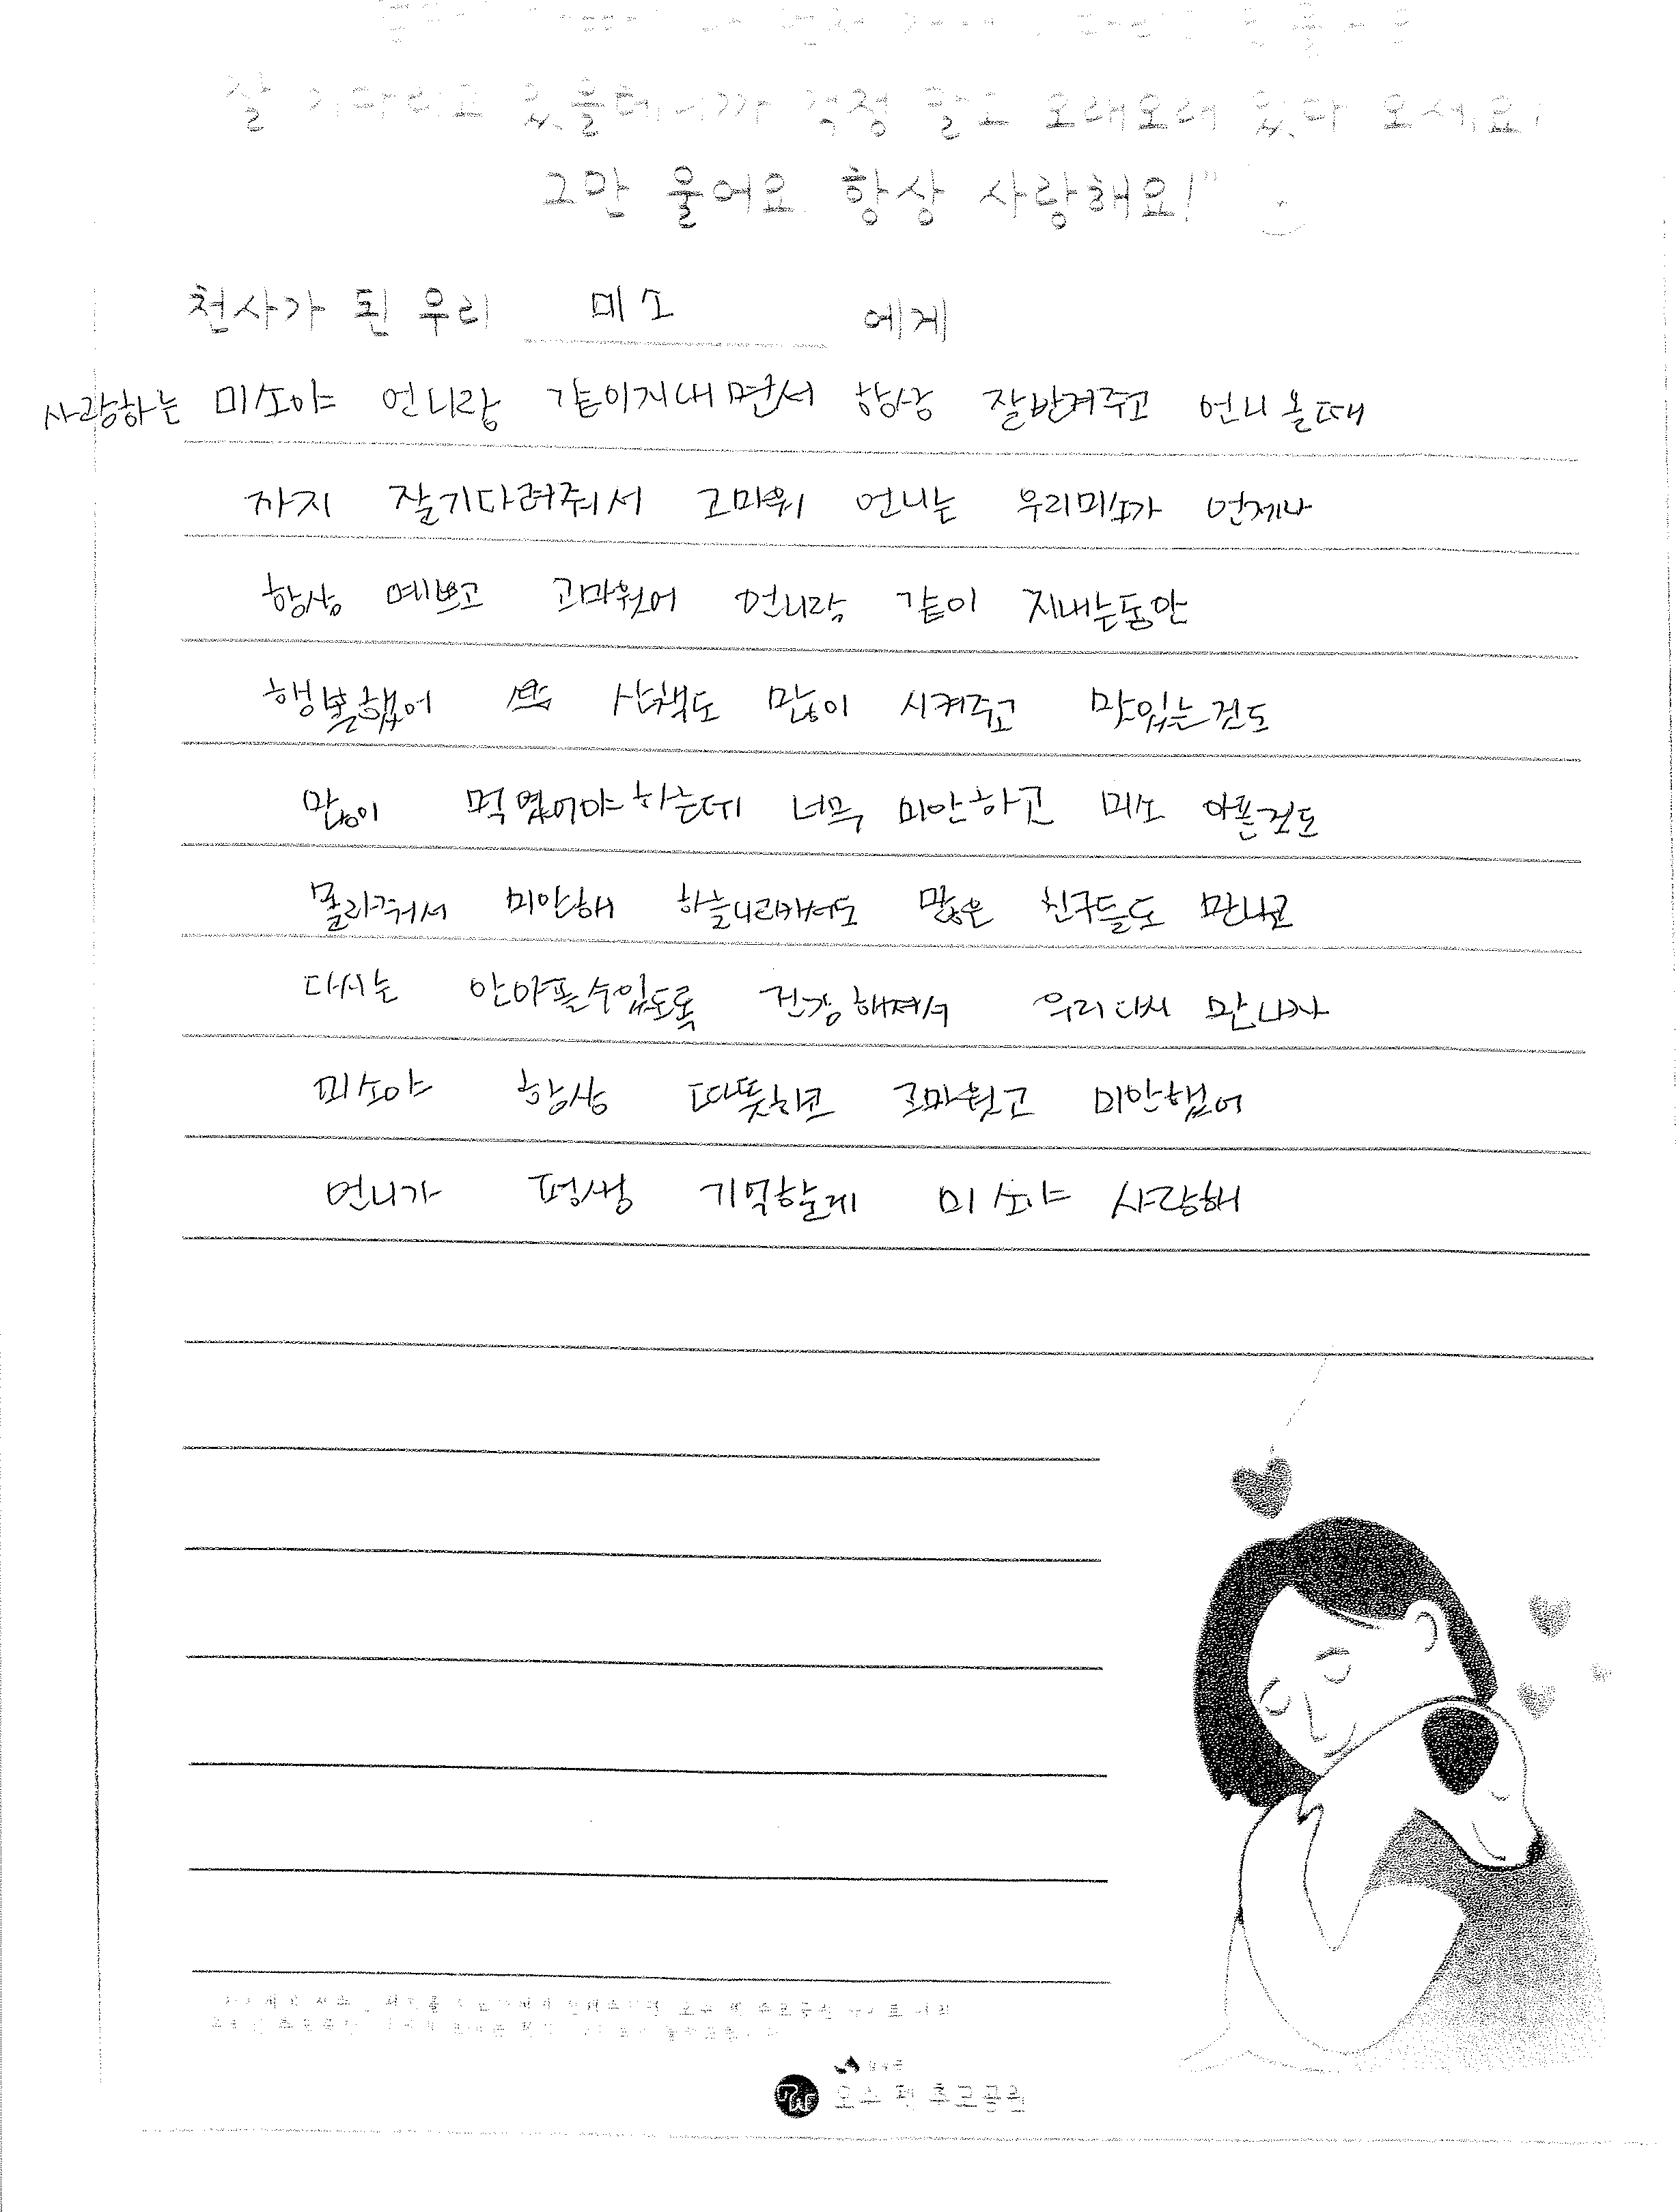 잘 기다리고 있을테니까 걱정 말고 오래오래 있다 오세요!
그만 울어요 항상 사랑해요!"
천사가 된 우리 미소 에게
사랑하는 미소야 언니랑 같이지내면서 항상 잘반겨주고 언니올때
까지 잘기다려줘서 고마워 언니는 우리미소가 언제나
항상 예쁘고 고마웠어 언니랑 같이 지내는동안
행복했어 산책도 많이 시켜주고 맛있는것도
많이 먹였어야하는데 너무 미안하고 미소 아픈것도
몰라줘서 미안해 하늘나라에서도 많은 친구들도 만나고
다시는 안아플수있도록 건강해져서 우리다시 만나자
미소야 항상 고마웠고 미안했어
언니가 평생 기억할게 미소야 사랑해
오수 펫 추모공원